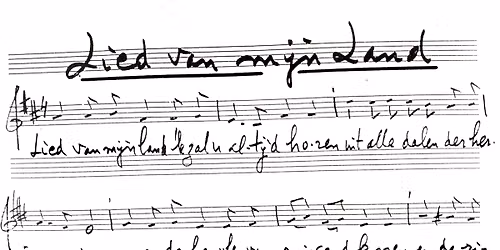 Lied van mijn Land
Lied van mijn land 'k zal u al-tijd ho-ren uit alle dalen der her-